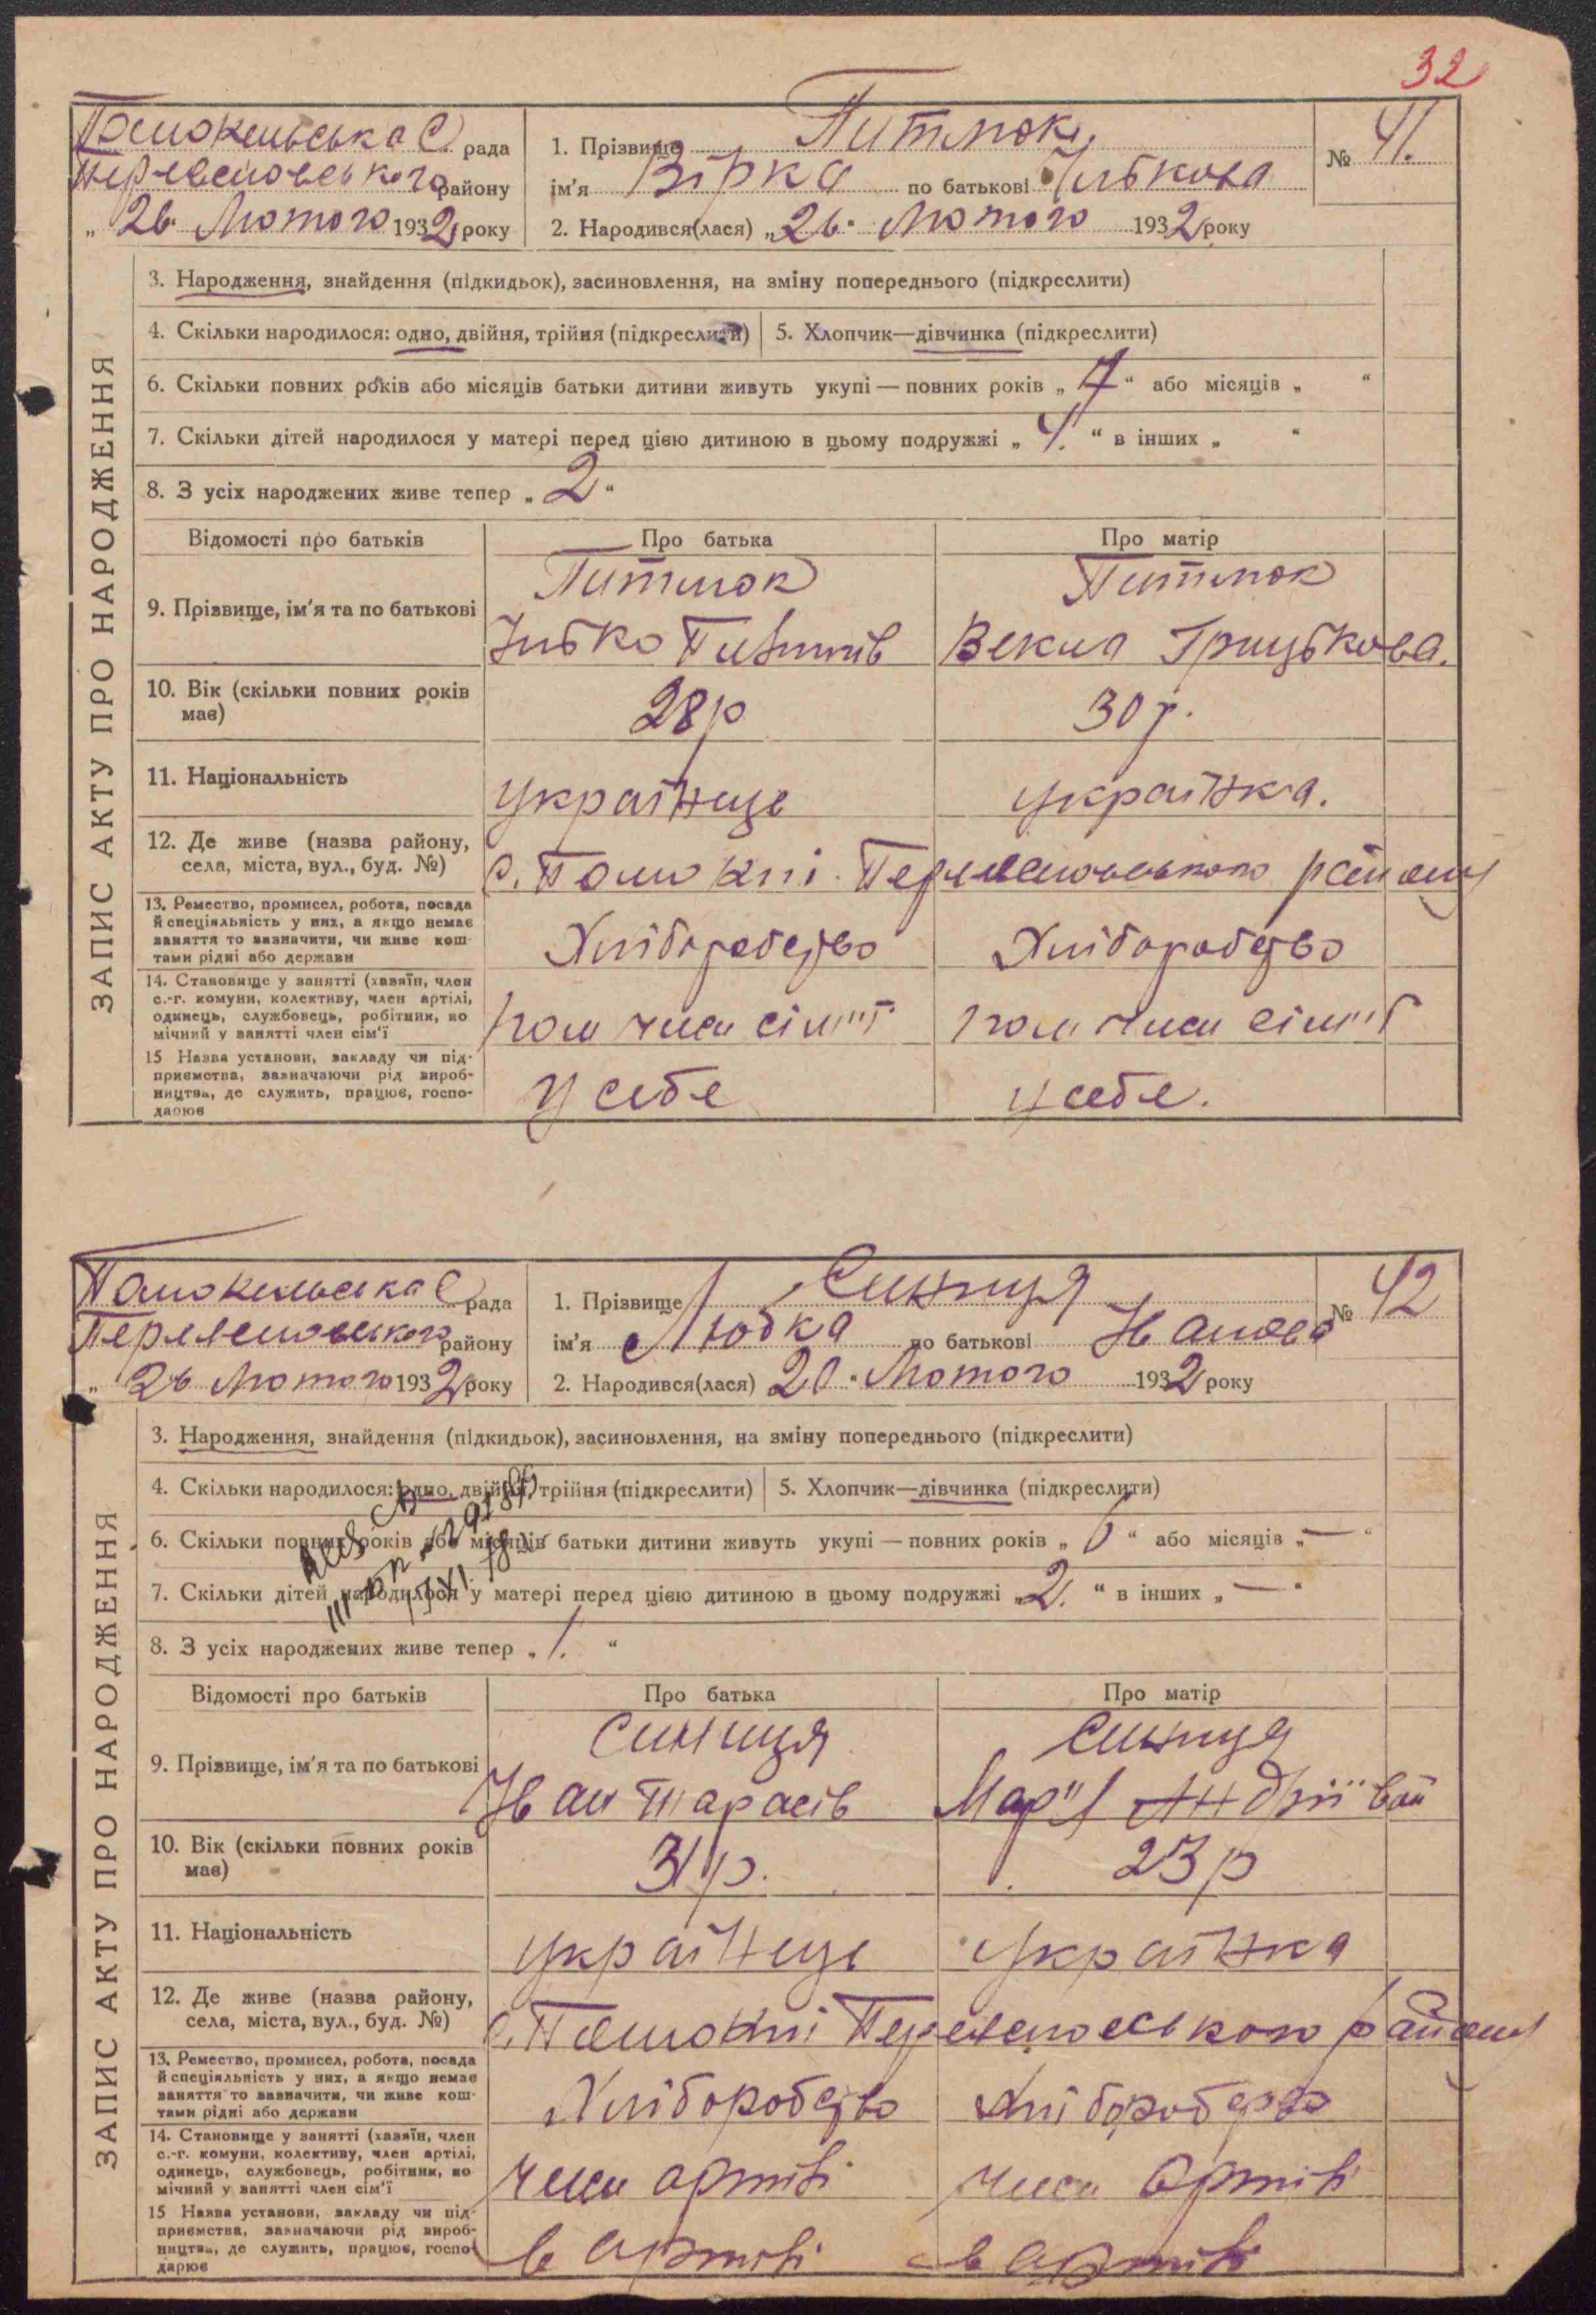 32
Помокельська С. рада
1. Прізвище Питлюк
№ 41.
району
ім'я Вірка по батькові Ількова
„ 26 Лютого 1932 року
2. Народився(лася) „26" Лютого 1932 року
ЗАПИС АКТУ ПРО НАРОДЖЕННЯ
3. Народження, знайдення (підкидьок), засиновлення, на зміну попереднього (підкреслити)
4. Скільки народилося: одно, двійня, трійня (підкреслити)
5. Хлопчик—дівчинка (підкреслити)
6. Скільки повних років або місяців батьки дитини живуть укупі — повних років „ 7 “ або місяців „ “
7. Скільки дітей народилося у матері перед цією дитиною в цьому подружжі „ 4. “ в інших „ “
8. З усіх народжених живе тепер „ 2 “
Відомості про батьків
Про батька
Про матір
9. Прізвище, ім'я та по батькові
Питлюк
Ілько
Питлюк
Векла Грицькова.
10. Вік (скільки повних років має)
28 р
30 р.
11. Національність
українець
українка.
12. Де живе (назва району, села, міста, вул., буд. №)
с. Помоклі району
13. Ремество, промисел, робота, посада й спеціяльність у них, а якщо немає заняття то зазначити, чи живе коштами рідні або держави
Хліборобство
Хліборобство
14. Становище у занятті (хазяїн, член с.-г. комуни, колективу, член артілі, одинець, службовець, робітник, помічний у занятті член сім'ї
пом член сім"ї
пом член сім"ї
15 Назва установи, закладу чи підприємства, зазначаючи рід виробництва, де служить, працює, господарює
У себе
у себе.
Помокельська С рада
1. Прізвище Синиця
№ 42
району
ім'я Любка по батькові Іванова
„ 26 Лютого 1932 року
2. Народився(лася) 20 " Лютого 1932 року
ЗАПИС АКТУ ПРО НАРОДЖЕННЯ
3. Народження, знайдення (підкидьок), засиновлення, на зміну попереднього (підкреслити)
4. Скільки народилося: одно, двійня, трійня (підкреслити)
5. Хлопчик—дівчинка (підкреслити)
6. Скільки повних років або місяців батьки дитини живуть укупі — повних років „ 6 “ або місяців „ — “
7. Скільки дітей народилося у матері перед цією дитиною в цьому подружжі „ 2. “ в інших „ — “
8. З усіх народжених живе тепер „ 1. “
Відомості про батьків
Про батька
Про матір
9. Прізвище, ім'я та по батькові
Синиця
Іван Тарасів
Синиця
Мар"я Андріївна
10. Вік (скільки повних років має)
31 р.
23 р
11. Національність
українець
українка
12. Де живе (назва району, села, міста, вул., буд. №)
с. Помоклі району
13. Ремество, промисел, робота, посада й спеціяльність у них, а якщо немає заняття то зазначити, чи живе коштами рідні або держави
Хліборобство
Хліборобство
14. Становище у занятті (хазяїн, член с.-г. комуни, колективу, член артілі, одинець, службовець, робітник, помічний у занятті член сім'ї
член артілі
член артілі
15 Назва установи, закладу чи підприємства, зазначаючи рід виробництва, де служить, працює, господарює
в артілі
в артілі